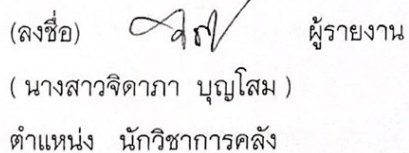 (ลงชื่อ) ผู้รายงาน
( นางสาวจิดาภา บุญโสม )
ตำแหน่ง นักวิชาการคลัง